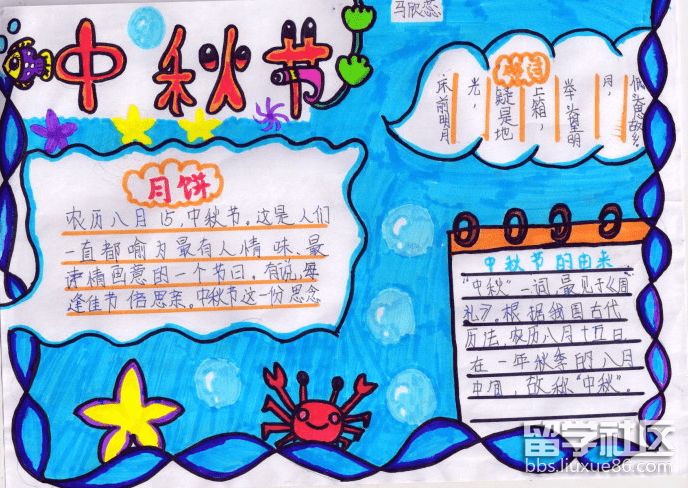 中秋节
马欣蕊
床前明月
光，
疑是地
上箱，
举头望明
月，
低头思故乡
月饼
农历八月15,中秋节。这是人们
一直都喻为最有人情味、最
诗情画意的一个节日。有说,每
逢佳节倍思亲。中秋节这一份思念
中秋节的由来
"中秋"一词,最见于《周
礼》,根据我国古代
历法,农历八月十五日
在一年秋季的八月
中旬,故称"中秋"。
留学社区
bbs.liuxue86.com